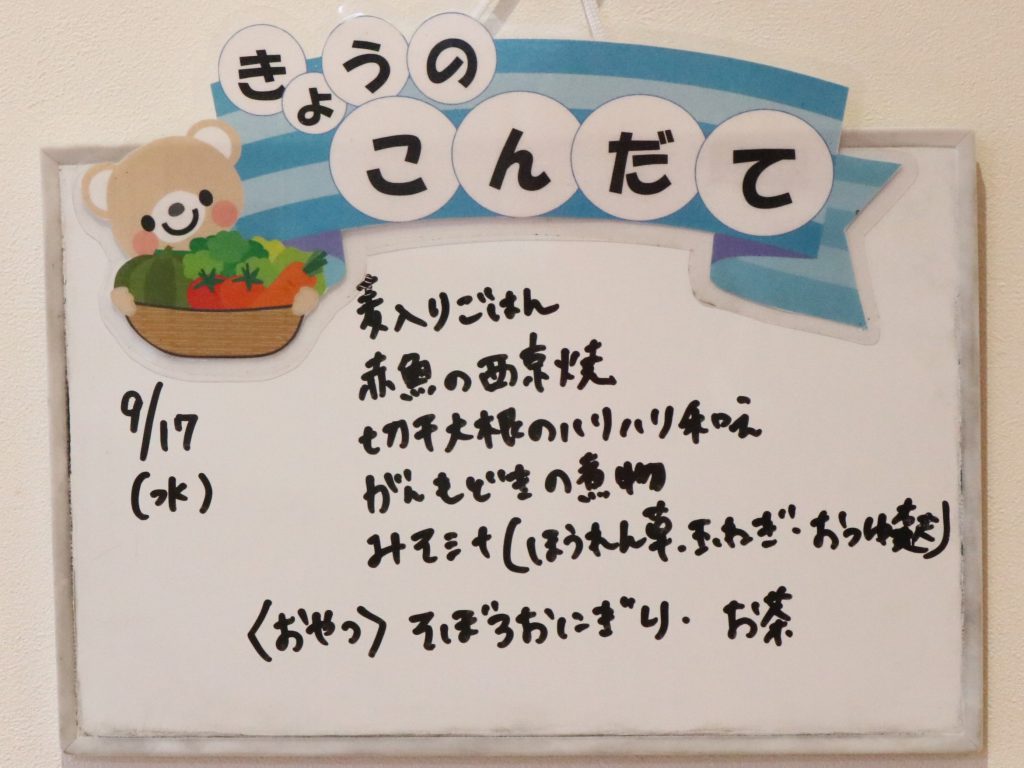 きょうの
こんだて
9/17
(水)
麦入りごはん
赤魚の西京焼
切干大根のハリハリ和え
がんもどきの煮物
みそ汁(ほうれん草.玉ねぎ.おつゆ麩)
〈おやつ〉そぼろおにぎり. お茶